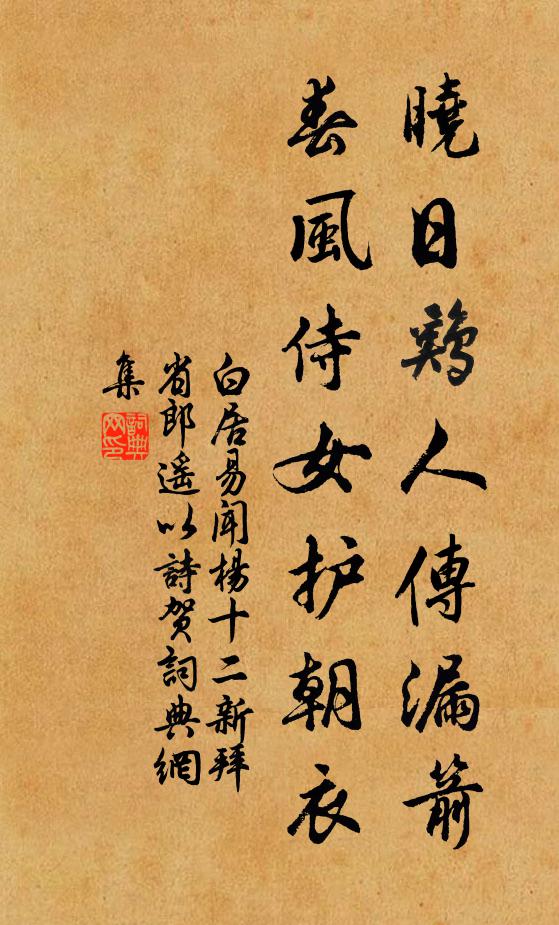 曉日鷄人傳漏箭
春風侍女护朝衣
白居易聞楊十二新拜
省郎遥以詩贺詞典網
集
詞典网印